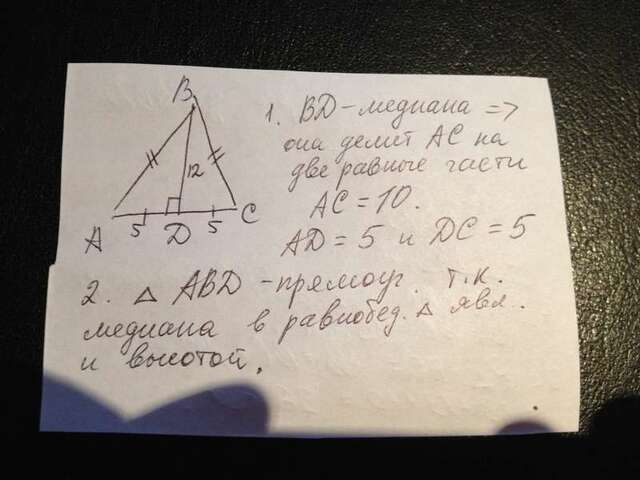 B
12
A
5
D
5
C
1. BD - медиана =>
она делит AC на
две равные части
AC = 10.
AD = 5 и DC = 5
2. △ ABD - прямоуг. т.к.
медиана в равнобед. △ явл.
и высотой.